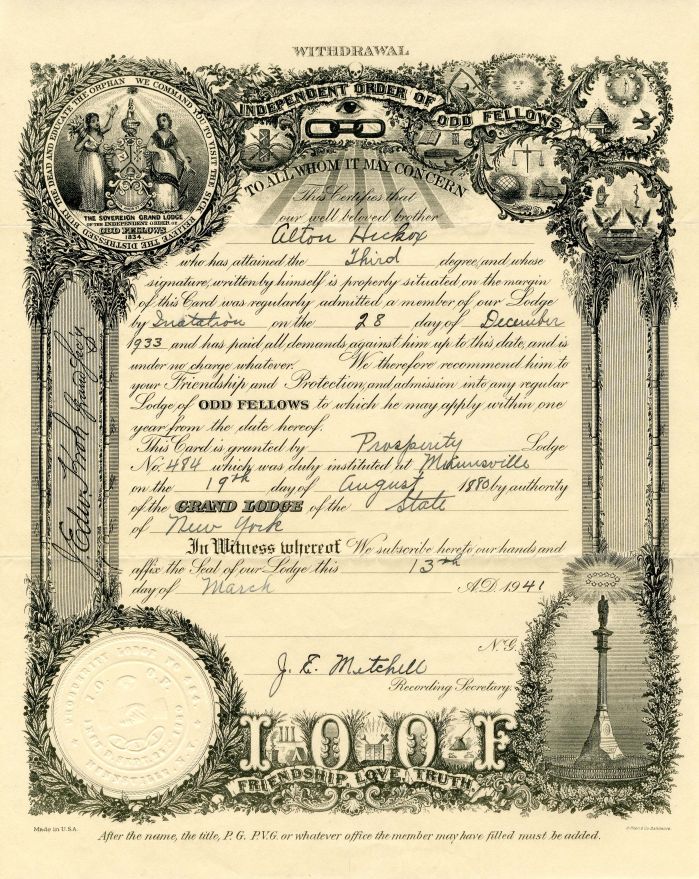 WITHDRAWAL
INDEPENDENT ORDER OF ODD FELLOWS
WE COMMAND YOU TO VISIT THE SICK RELIEVE THE DISTRESSED BURY THE DEAD AND EDUCATE THE ORPHAN
THE SOVEREIGN GRAND LODGE
OF THE INDEPENDENT ORDER OF
ODD FELLOWS
1834
TO ALL WHOM IT MAY CONCERN
This Certifies that
our well beloved brother
Alton Hickox
who has attained the Third degree, and whose
signature, written by himself is properly situated on the margin
of this Card, was regularly admitted a member of our Lodge
by Inatation on the 28 day of December
1933 and has paid all demands against him up to this date, and is
under no charge whatever. We therefore recommend him to
your Friendship and Protection, and admission into any regular
Lodge of ODD FELLOWS to which he may apply within one
year from the date hereof.
This Card is granted by Prosperity Lodge
No. 484 which was duly instituted at Munnsville
on the 19th day of August 1880 by authority
of the GRAND LODGE of the State
of New York
In Witness whereof We subscribe hereto our hands and
affix the Seal of our Lodge this 13th
day of March A.D. 1941
N.G.
J. E. Mitchell
Recording Secretary.
J. Edw Grand Secy
PROSPERITY LODGE NO 484
I.O. O.F.
MUNNSVILLE N.Y.
I O O F
FRIENDSHIP, LOVE, TRUTH.
Made in U.S.A.
After the name, the title, P. G. P.V.G. or whatever office the member may have filled must be added.